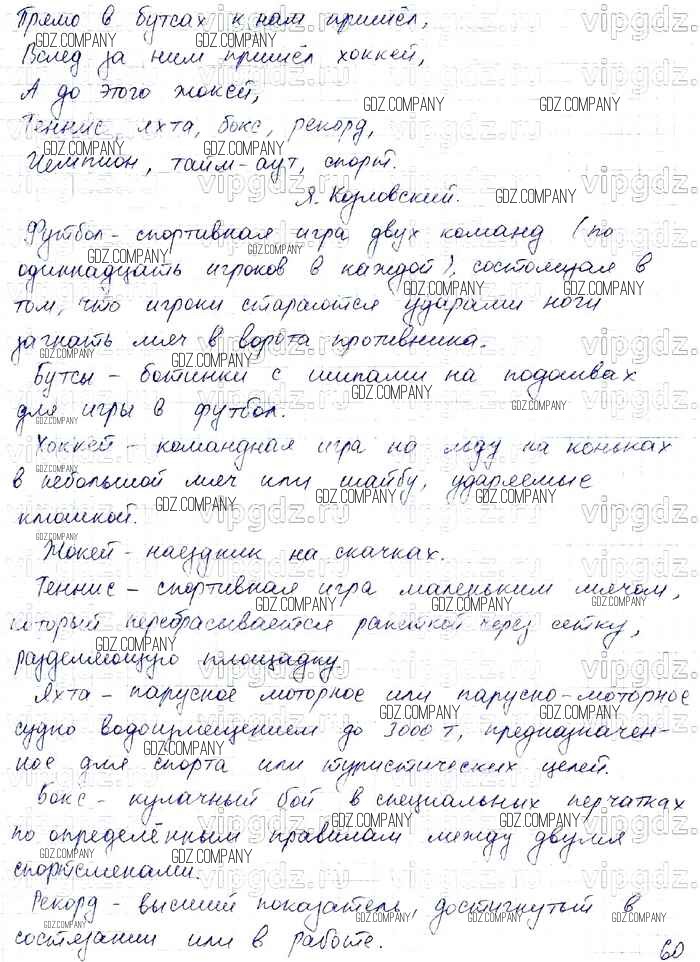 Прямо в бутсах к нам пришёл,
Вслед за ним пришёл хоккей,
А до этого жокей,
Теннис, яхта, бокс, рекорд,
Чемпион, тайм-аут, спорт.
Я. Козловский.
Футбол - спортивная игра двух команд (по
одиннадцать игроков в каждой), состоящая в
том, что игроки стараются ударами ноги
загнать мяч в ворота противника.
Бутсы - ботинки с шипами на подошвах
для игры в футбол.
Хоккей - командная игра на льду на коньках
в небольшой мяч или шайбу, ударяемые
клюшкой.
Жокей - наездник на скачках.
Теннис - спортивная игра маленьким мячом,
который перебрасывается ракеткой через сетку,
разделяющую площадку.
Яхта - парусное моторное или парусно-моторное
судно водоизмещением до 3000 т, предназначен-
ное для спорта или туристических целей.
Бокс - кулачный бой в специальных перчатках
по определённым правилам между двумя
спортсменами.
Рекорд - высший показатель, достигнутый в
состязании или в работе.
60
GDZ.COMPANY
vipgdz.ru